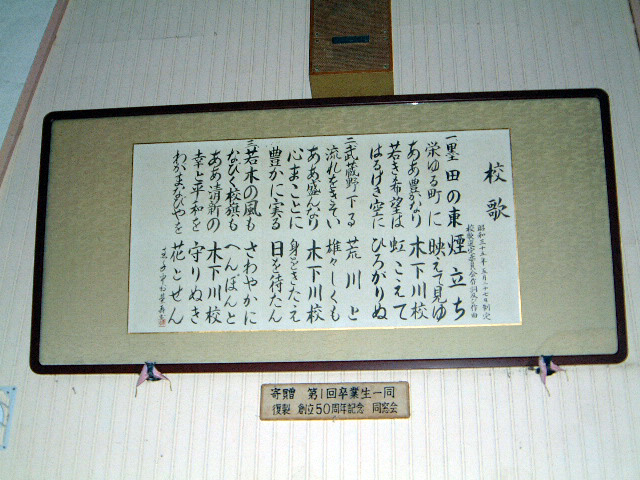 校歌
昭和三十五年五月二十七日制定
一 墨田の東煙立ち
栄ゆる町に映えて見ゆ
ああ豊かなり木下川校
若き希望は虹こえて
はるけき空にひろがりぬ
二 武蔵野下る荒川と
流れをきそい雄々しくも
ああ盛んなり木下川校
心まことに身をきたえ
豊かに実る日を待たん
三 若木の風もさわやかに
なびく校旗もへんぽんと
ああ清新の木下川校
幸と平和を守りぬき
わがまなびやを花とせん
寄贈 第1回卒業生一同
復製 創立50周年記念 同窓会